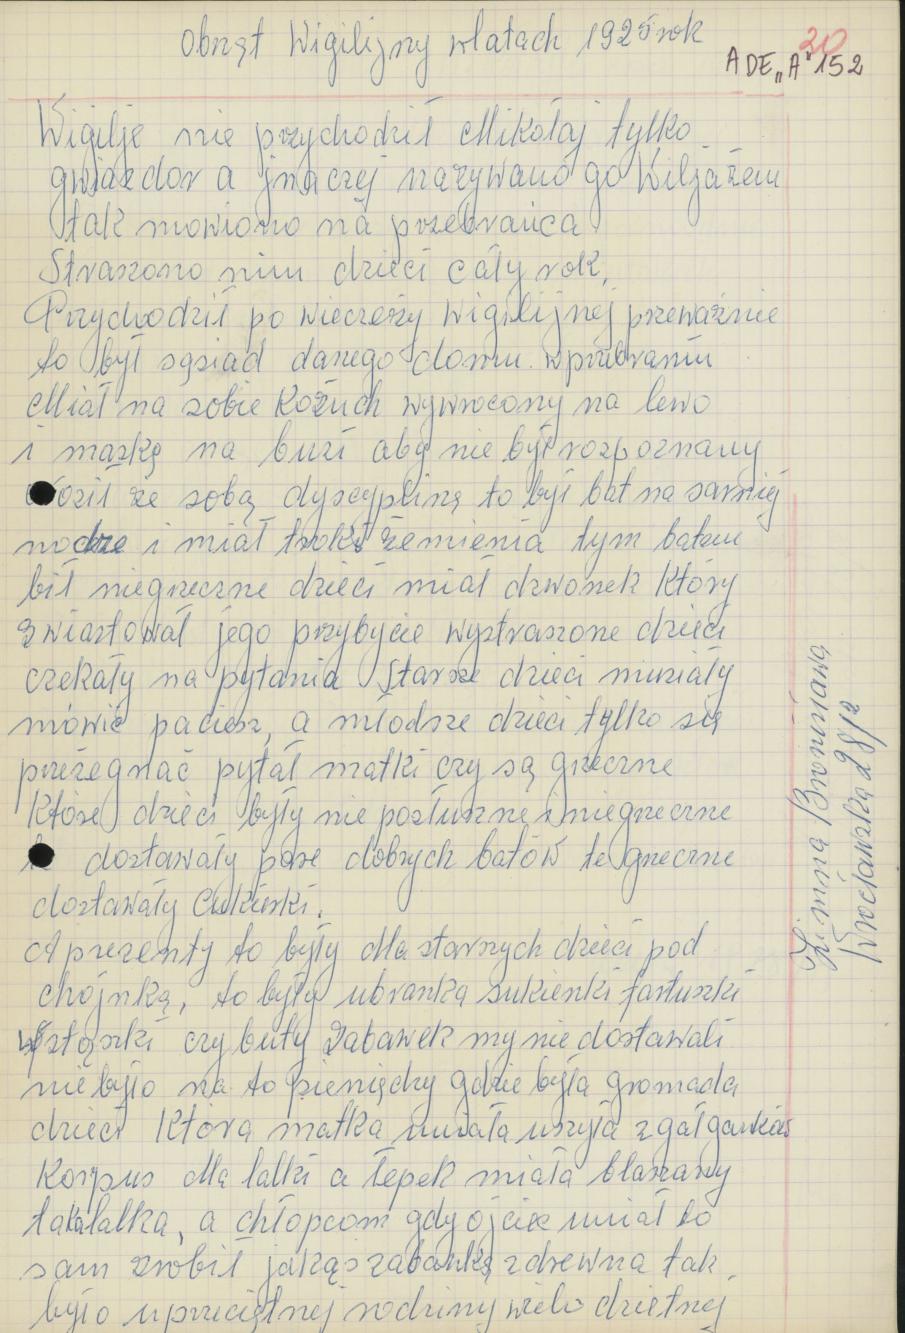 Obrzęt Wigilijny w latach 1925 rok
20
ADE „A" 152
Wigilje nie przychodził Mikołaj tylko
gwiazdor a jnaczej nazywano go Wiljażem
tak mowiono na przebrańca
Straszono nim dzieci cały rok,
Przychodził po wieczeży wigilijnej przeważnie
to był sąsiad danego domu w przebraniu
Miał na sobie Kożuch wywrocony na lewo
i maskę na buzi aby nie być rozpoznany
ze sobą dyscyplinę to był bat na sarniej
nodze i miał troki żemienia tym batem
bił niegrzeczne dzieci miał dzwonek Który
zwiastował jego przybycie wystraszone dzieci
czekały na pytania Starsze dzieci musiały
mówić paciesz, a młodsze dzieci tylko się
przeżegnać pytał matki czy są grzeczne
Które dzieci były nie posłuszne i niegrzeczne
to dostawały pare dobrych batów te grzeczne
dostawały Cukierki.
A prezenty to były dla starszych dzieci pod
chojnką, to były ubranka sukienki fartuszki
wstąszki czy buty Zabawek my nie dostawali
nie było na to pieniędzy gdzie była gromada
dzieci Ktora matka umiała uszyła z gałganków
Korpus dla lalki a łepek miała blaszany
taka lalka, a chłopcom gdy ojciec umiał to
sam zrobił jakąś zabawkę z drewna tak
było u przeciętnej rodziny wielo dzietnej
Zimna Bronisława
Wrocławska 28/2